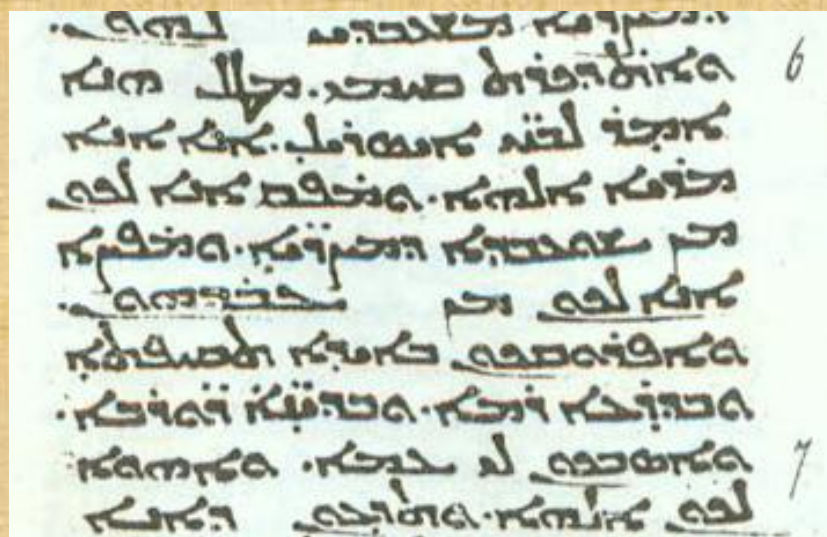 ܕܡܨܪ̈ܝܐ ܡܫܥܒܕܝܢ ܠܗܘܢ.
ܘܐܬܕܟܪܬ ܩܝܡܝ. ܡܛܠ ܗܢܐ 6
ܐܡܪ ܠܒܢ̈ܝ ܐܝܣܪܝܠ. ܐܢܐ ܐܢܐ
ܡܪܝܐ ܐܠܗܐ. ܘܡܦܩ ܐܢܐ ܠܟܘܢ
ܡܢ ܫܘܥܒܕܐ ܕܡܨܪ̈ܝܐ. ܘܡܦܨܐ
ܐܢܐ ܠܟܘܢ ܡܢ ܥܒܕܘܬܗܘܢ.
ܘܐܦܪܘܩܟܘܢ ܒܐܝܕܐ ܬܩܝܦܬܐ
ܘܒܕܪܥܐ ܪܡܐ. ܘܒܕܝ̈ܢܐ ܪ̈ܘܪܒܐ.
ܘܐܣܒܟܘܢ ܠܝ ܥܡܐ. ܘܐܗܘܐ 7
ܠܟܘܢ ܐܠܗܐ. ܘܬܕܥܘܢ ܕܐܢܐ